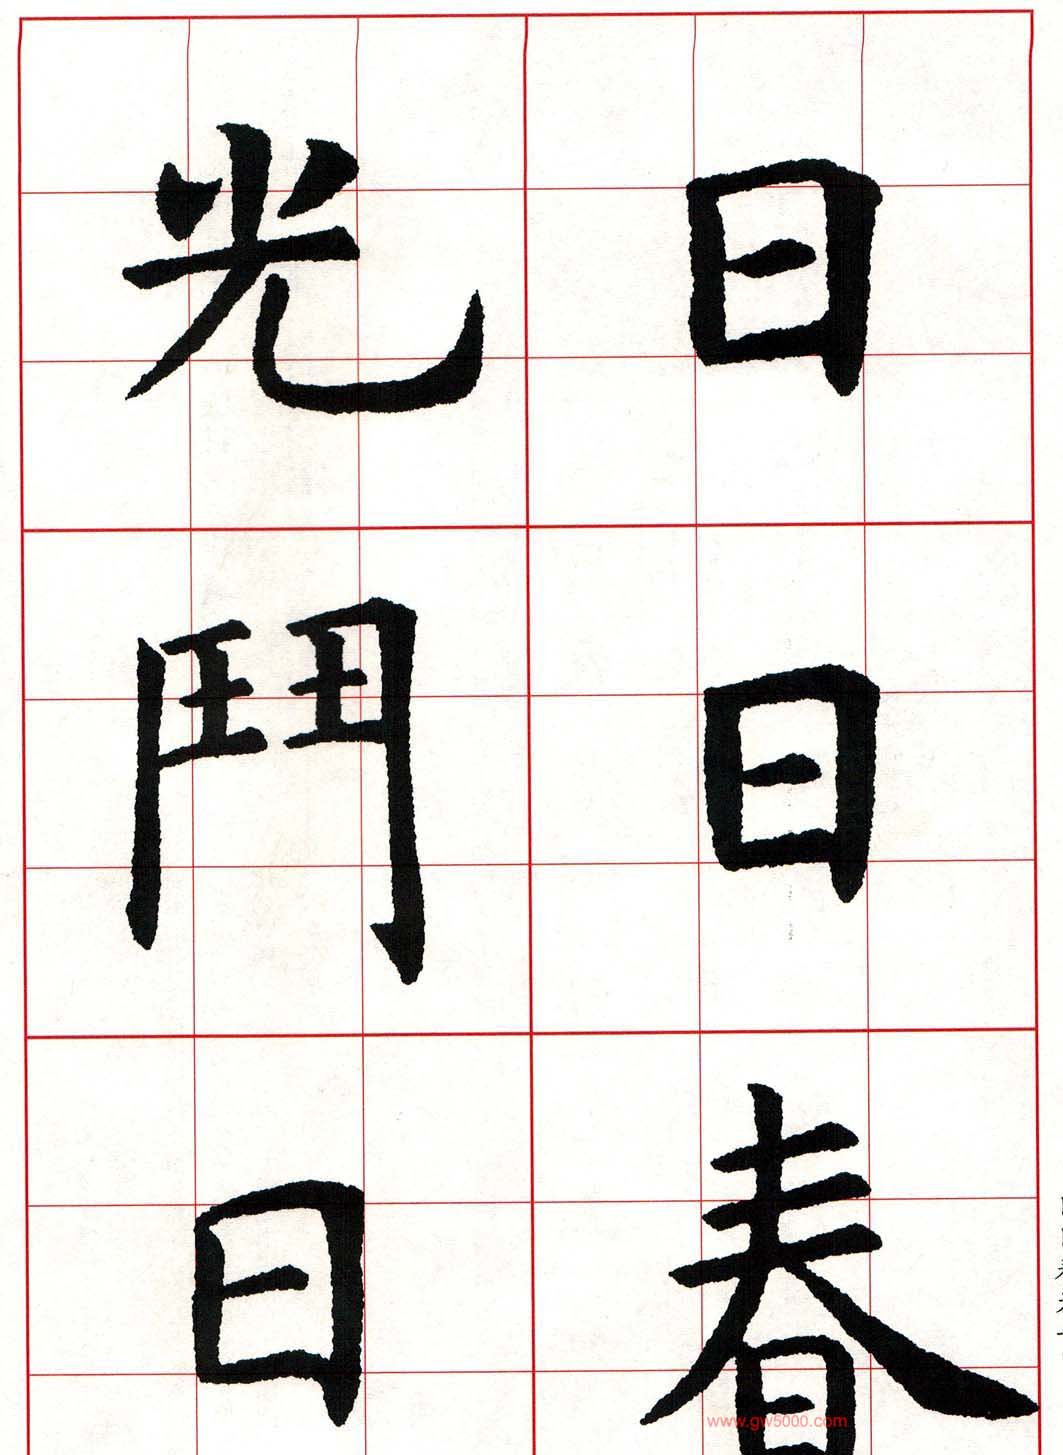 日日春
光鬥日
www.gw5000.com